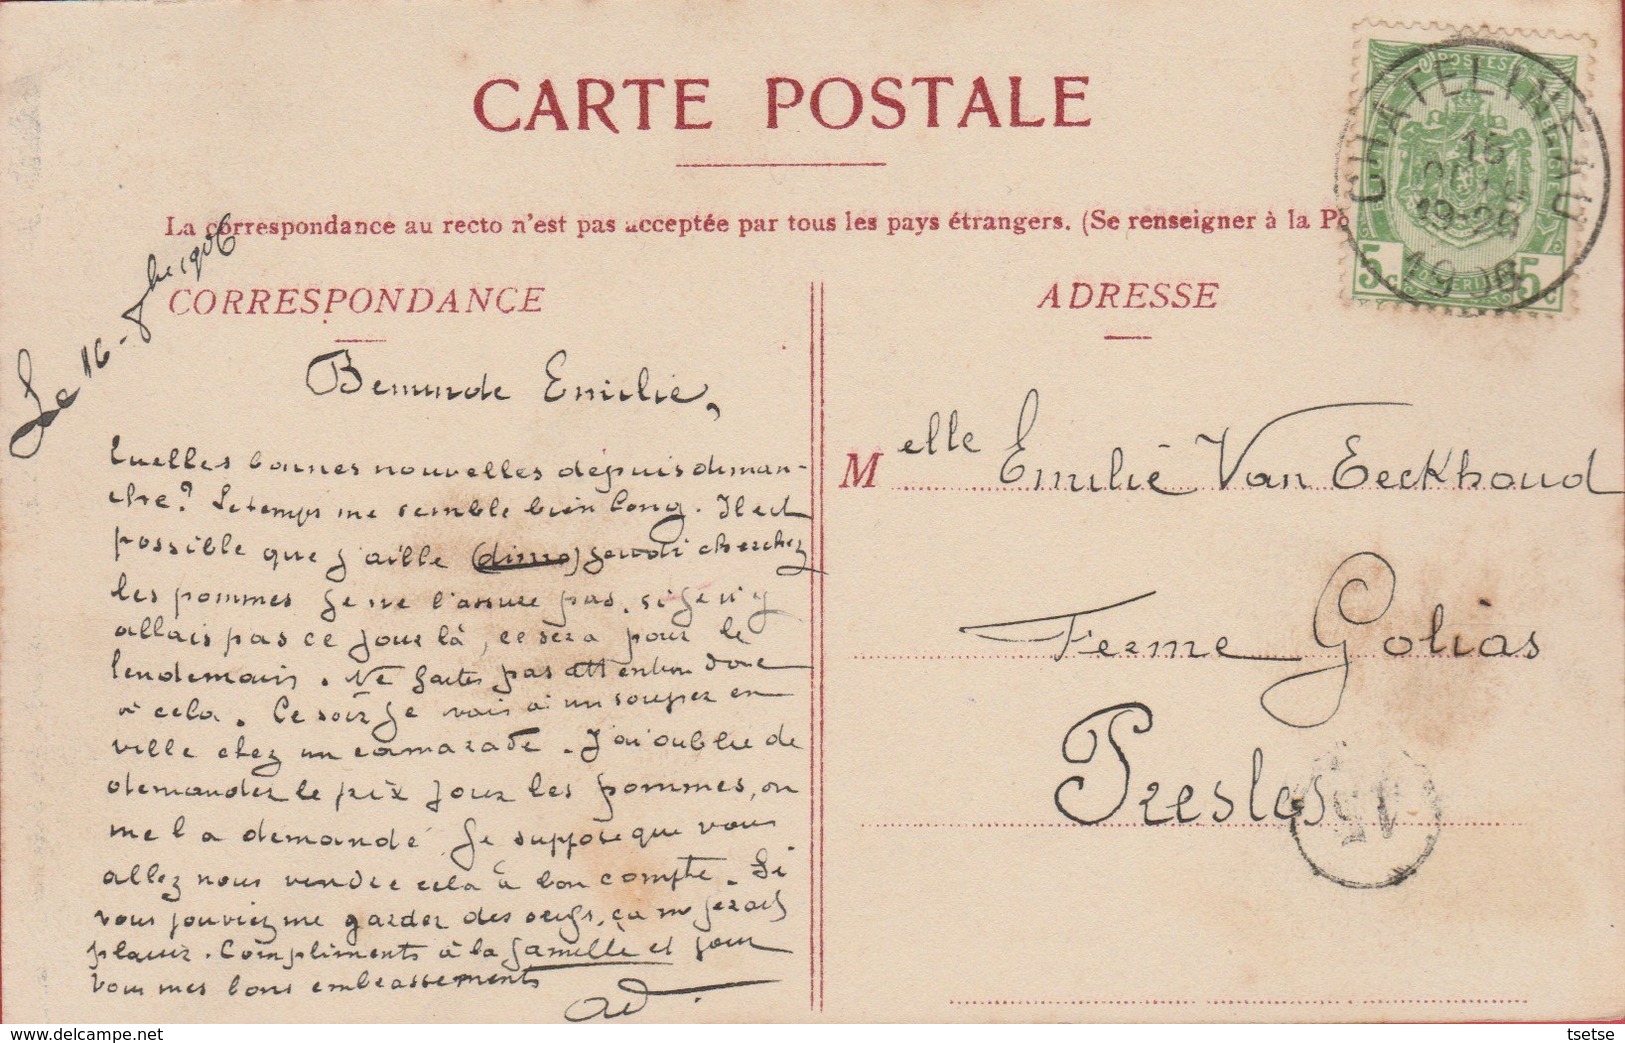 CARTE POSTALE
La correspondance au recto n'est pas acceptée par tous les pays étrangers. (Se renseigner à la Po
CHATELINEAU
15
19-20
1906
POSTES
5c 5c
Le 16-8bre 1906
CORRESPONDANCE
Beminde Emilie,
Quelles bonnes nouvelles depuis diman-
che? Le temps me semble bien long. Il est
possible que j'aille jeudi chercher
les pommes je ne l'assure pas, si je n'y
allais pas ce jour là, ce sera pour le
lendemain. Ne faites pas attention donc
à cela. Ce soir je vais à un souper en
ville chez un camarade. J'ai oublié de
demander le prix pour les pommes, on
me l'a demandé. Je suppose que vous
allez nous vendre cela à bon compte. Si
vous pouviez me garder des oeufs, ça me ferait
plaisir. Compliments à la famille et pour
vous mes bons embrassements
ADRESSE
Melle Emilie Van Eeckhoud
Ferme Golias
Presles
tsetse